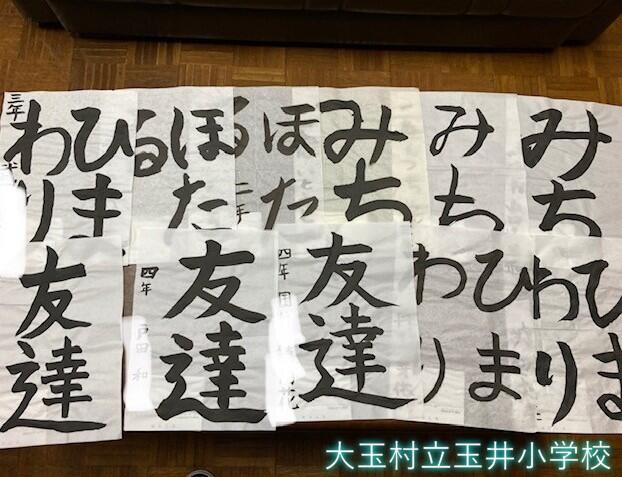 三年
ひまわり
ほたる
ほた
二年
みち
みち
みち
友達
四年
友達
戸田 和
四年
友達
ひまわり
ひまわり
大玉村立玉井小学校